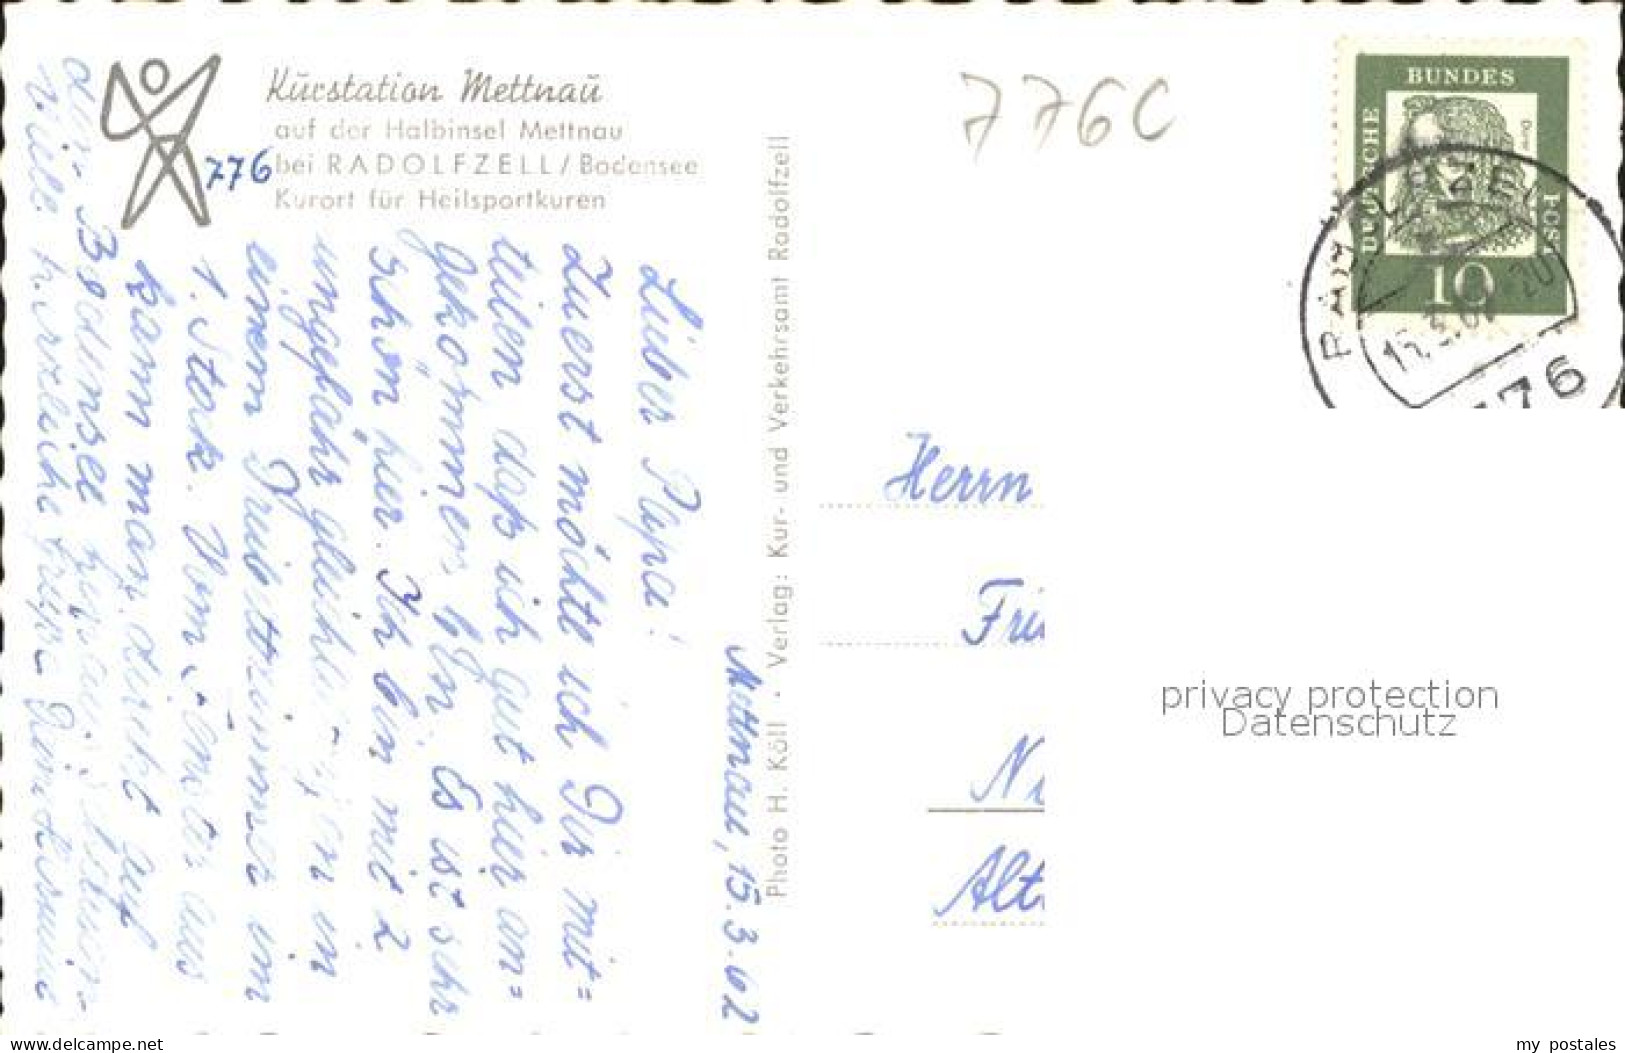 Kurstation Mettnau
auf der Halbinsel Mettnau
bei RADOLFZELL / Bodensee
Kurort für Heilsportkuren
776
776C
DEUTSCHE
BUNDES
POST
10
15.3.62
776
Mettnau, 15.3.62
Lieber Papa!
Zuerst möchte ich Dir mit=
teilen daß ich gut hier an=
gekommen bin. Es ist sehr
schön hier. Ich bin mit 2
ungefähr in
einem Dreibettzimmer im
1. Stock. Vom aus
kann man direkt auf
den Bodensee
Viele herzliche Grüße
Photo H. Köll · Verlag: Kur- und Verkehrsamt Radolfzell
Herrn
privacy protection
Datenschutz
www.delcampe.net
my_postales